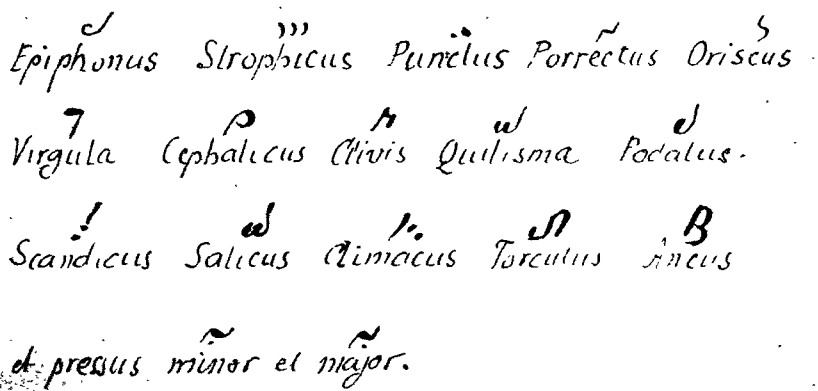 Epiphonus Strophicus Punctus Porrectus Oriscus
Virgula Cephalicus Clivis Quilisma Podatus.
Scandicus Salicus Climacus Torculus Ancus
et pressus minor et major.